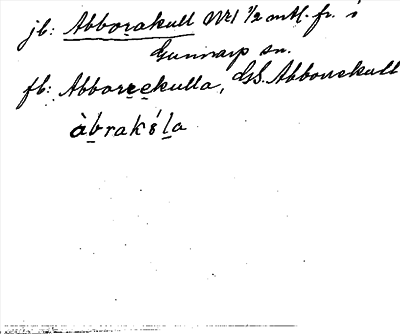 jb: Abborakull № 1 1/2 mtl. fr. i
Gunnarp sn.
fb: Abborekulla, GS. Abborrekull
àbrakśla